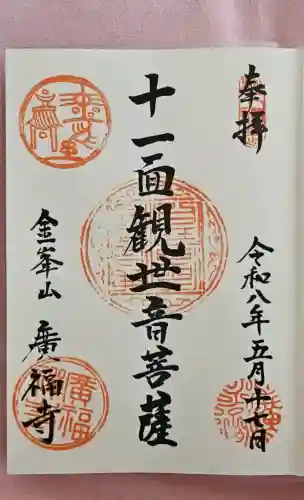 奉拝
令和八年五月十七日
十一面観世音菩薩
金峯山
廣福寺